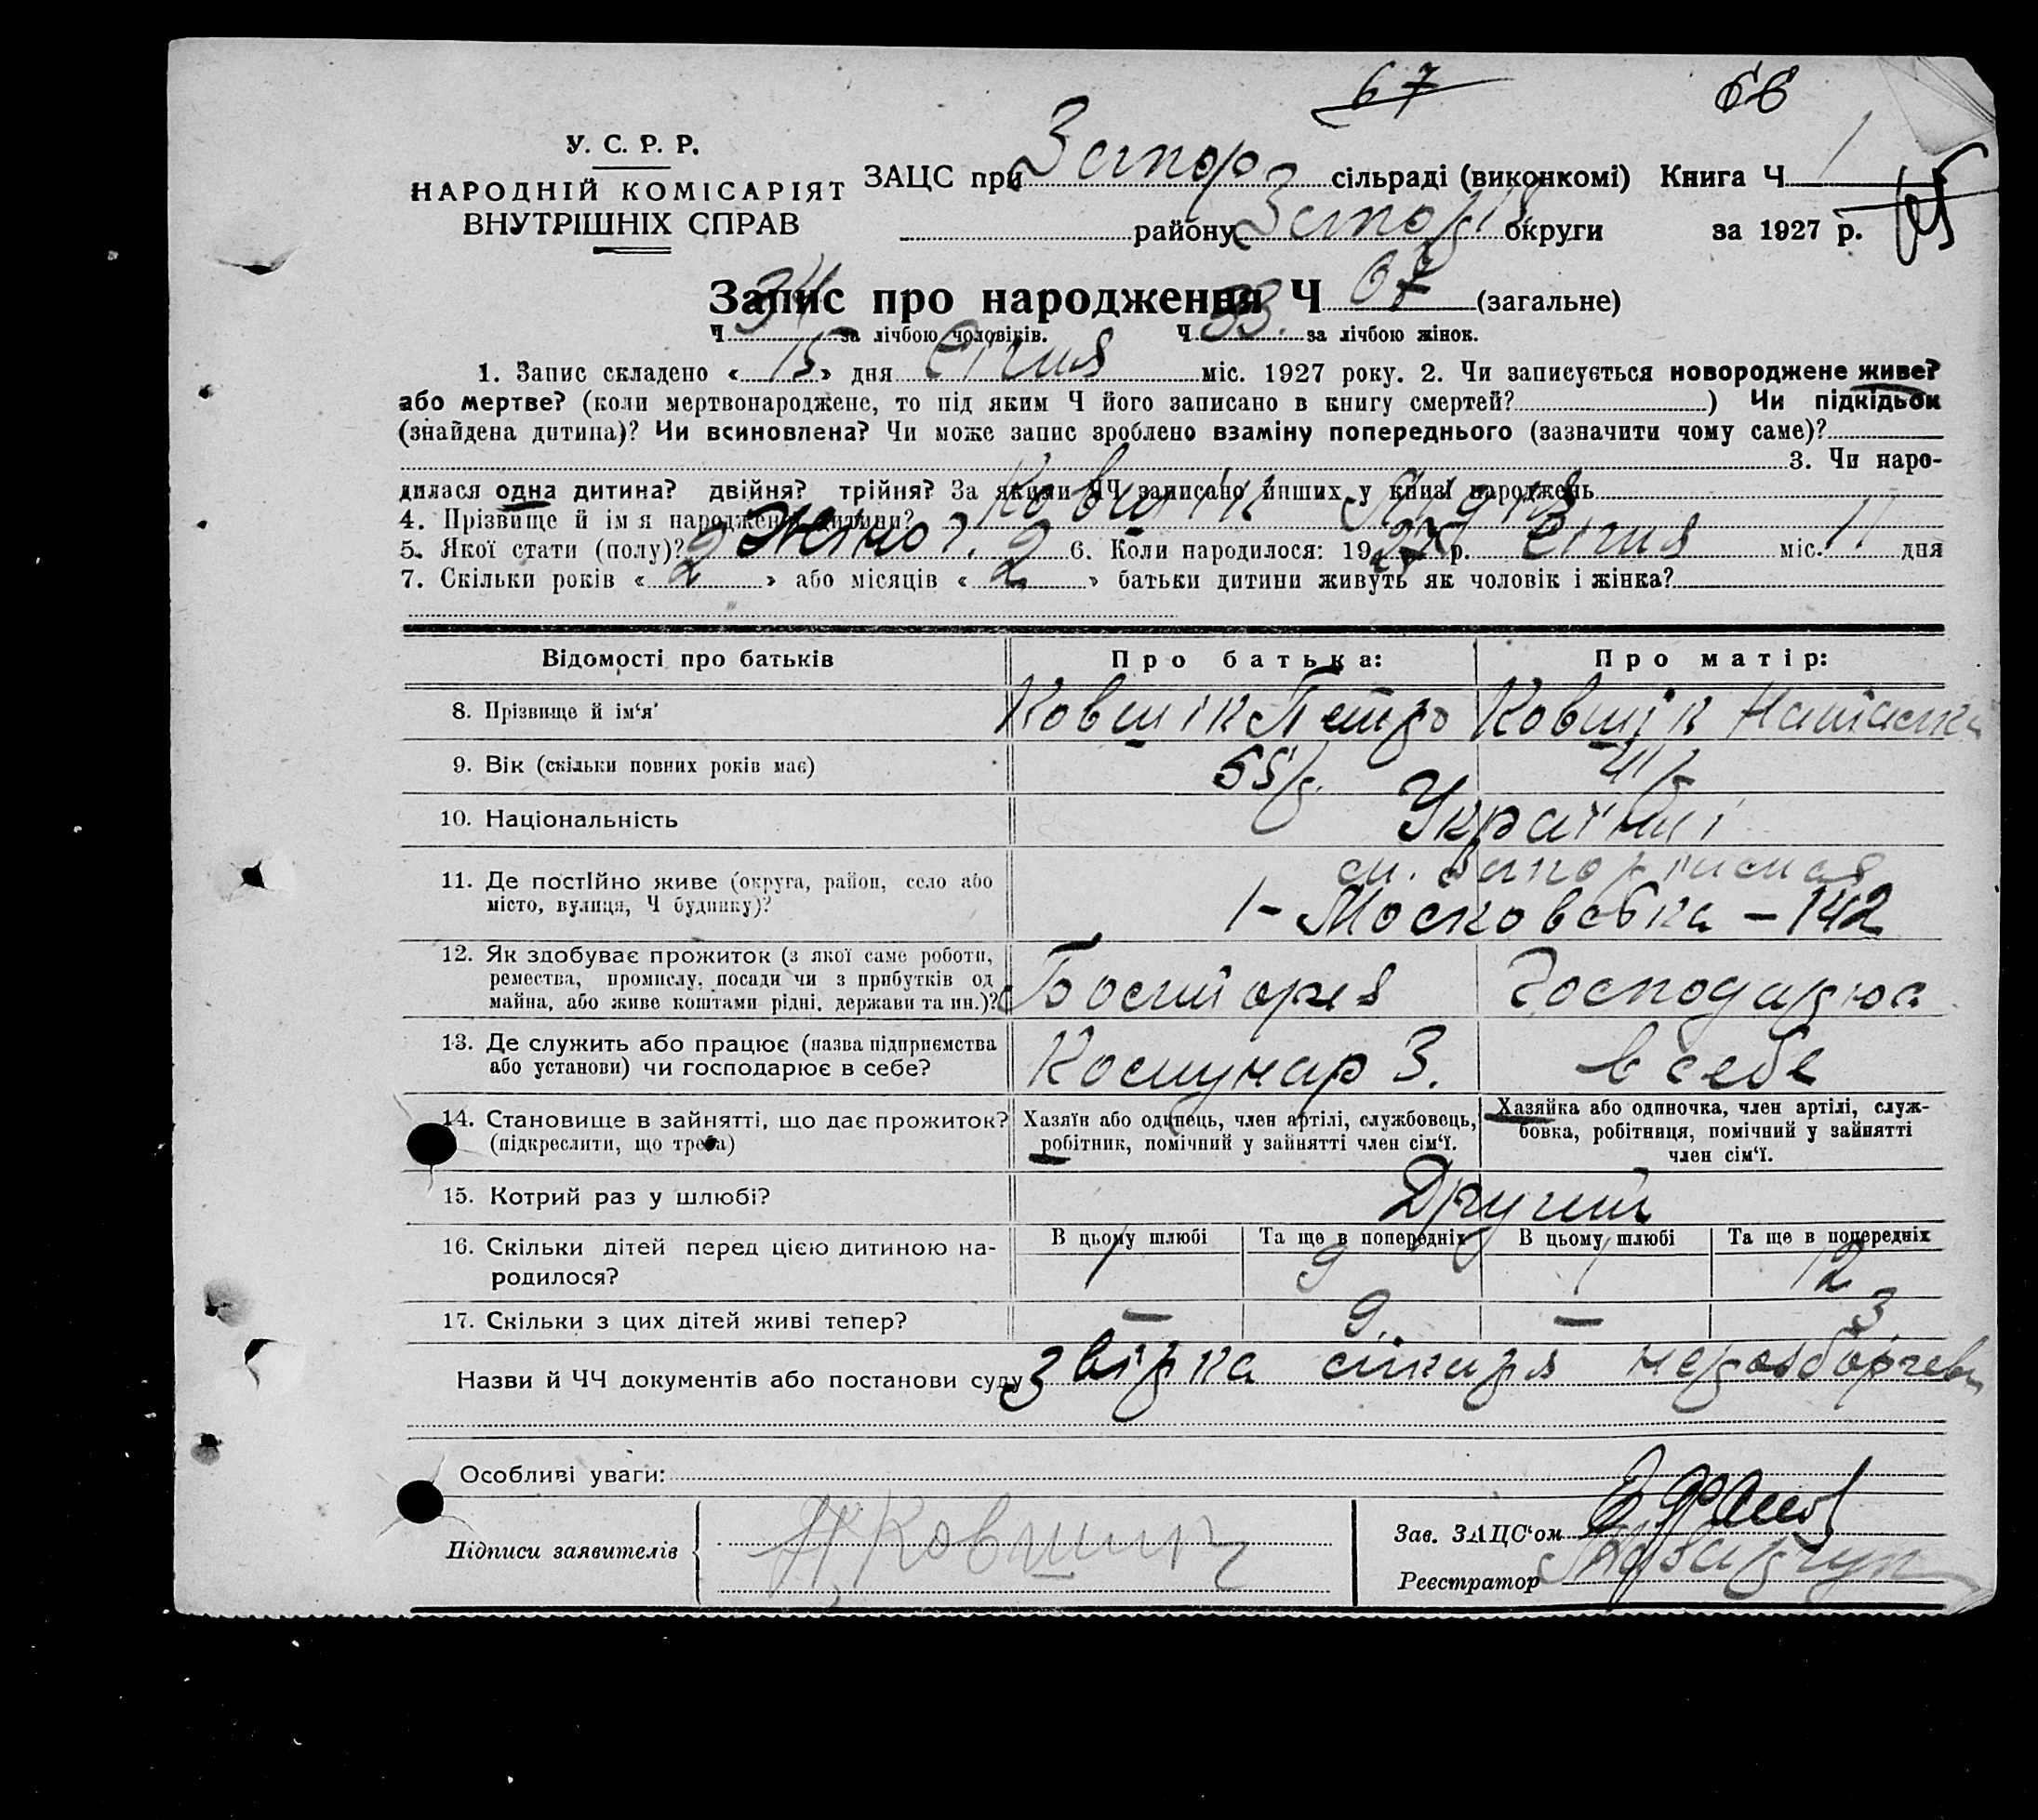 67 66
У. С. Р. Р.
НАРОДНІЙ КОМІСАРІЯТ
ВНУТРІШНІХ СПРАВ
ЗАЦС при Запор сільраді (виконкомі) Книга Ч 1
району Запор округи за 1927 р.
Запис про народження Ч 67 (загальне)
Ч 34 за лічбою чоловіків. Ч 33. за лічбою жінок.
1. Запис складено « 15 » дня Січня міс. 1927 року. 2. Чи записується новороджене живе?
або мертве? (коли мертвонароджене, то під яким Ч його записано в книгу смертей? ) Чи підкідьок
(знайдена дитина)? Чи всиновлена? Чи може запис зроблено взаміну попереднього (зазначити чому саме)?
3. Чи наро-
дилася одна дитина? двійня? трійня? За якими ЧЧ записано инших у книзі народжень
4. Прізвище й ім я народженої дитини? Ковшік
5. Якої стати (полу)? Жіно 6. Коли народилося: 19 р. Січня міс. 11 дня
7. Скільки років « 2 » або місяців « 2 » батьки дитини живуть як чоловік і жінка?
Відомості про батьків Про батька: Про матір:
8. Прізвище й ім‘я Ковшік Петро Ковшік
9. Вік (скільки повних років має) 55 р. 41 р
10. Національність Українці
11. Де постійно живе (округа, район, село або
місто, вулиця, Ч будинку)?
1 - Московська - 142
12. Як здобуває прожиток (з якої саме роботи,
ремества, промислу, посади чи з прибутків од
майна, або живе коштами рідні, держави та ин.)? Господарює
13. Де служить або працює (назва підприємства
або установи) чи господарює в себе? Комунар З. в себе
14. Становище в зайнятті, що дає прожиток?
(підкреслити, що треба)
Хазяїн або одинець, член артілі, службовець,
робітник, помічний у зайнятті член сім‘ї.
Хазяйка або одиночка, член артілі, служ-
бовка, робітниця, помічний у зайнятті
член сім‘ї.
15. Котрий раз у шлюбі? Другий
16. Скільки дітей перед цією дитиною на-
родилося?
В цьому шлюбі Та ще в попередніх В цьому шлюбі Та ще в попередніх
1 9 1 12
17. Скільки з цих дітей живі тепер? — 9. — 3.
Назви й ЧЧ документів або постанови суду звірка лікаря
Особливі уваги:
Підписи заявителів Ковшик
Зав. ЗАЦС‘ом
Реєстратор